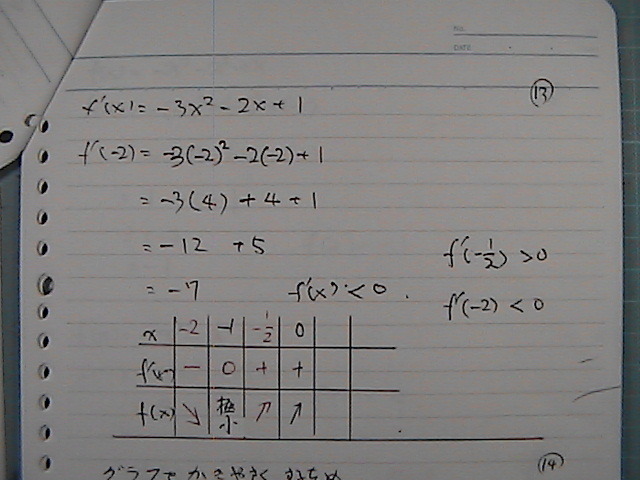 NO.
DATE
⑬
f'(x) = -3x² - 2x + 1
f'(-2) = -3(-2)² - 2(-2) + 1
= -3(4) + 4 + 1
= -12 + 5
f'(-1/2) > 0
= -7 f'(x) < 0.
f'(-2) < 0
x -2 -1 -1/2 0
f'(x) - 0 + +
f(x) ↘ 極小 ↗ ↗
⑭
グラフでかきやすく